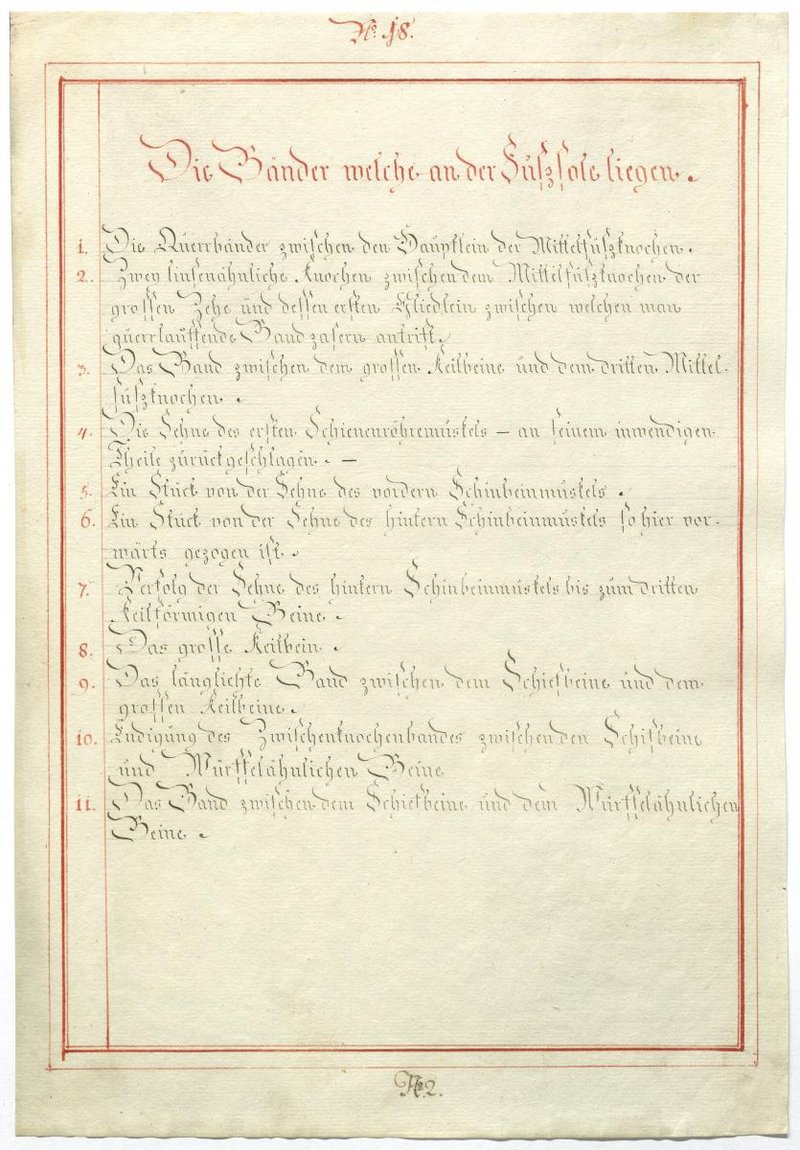 No. 18.
Die Bänder welche an der Fußsole liegen.
1. Die Querrbänder zwischen den Häuptlein der Mittelfußknochen.
2. Zwey linsenähnliche Knochen zwischen dem Mittelfußknochen der
grossen Zehe und dessen ersten Gliedlein zwischen welchen man
querrlauffende Bandzasern antrift.
3. Das Band zwischen dem grossen Keilbeine und dem dritten Mittel-
fußknochen.
4. Die Sehne des ersten Schienenröhremuskels – an seinem inwendigen
Theile zurückgeschlagen. –
5. Ein Stück von der Sehne des vordern Schinbeinmuskels.
6. Ein Stück von der Sehne des hintern Schinbeinmuskels so hier vor-
wärts gezogen ist.
7. Verfolg der Sehne des hintern Schinbeinmuskels bis zum dritten
keilförmigen Beine.
8. Das grosse Keilbein.
9. Das länglichte Band zwischen dem Schiefbeine und dem
grossen Keilbeine.
10. Endigung des Zwischenknochenbandes zwischen den Schifbeine
und Würffelähnlichen Beine
11. Das Band zwischen dem Schiefbeine und dem Würffelähnlichen
Beine.
No. 2.